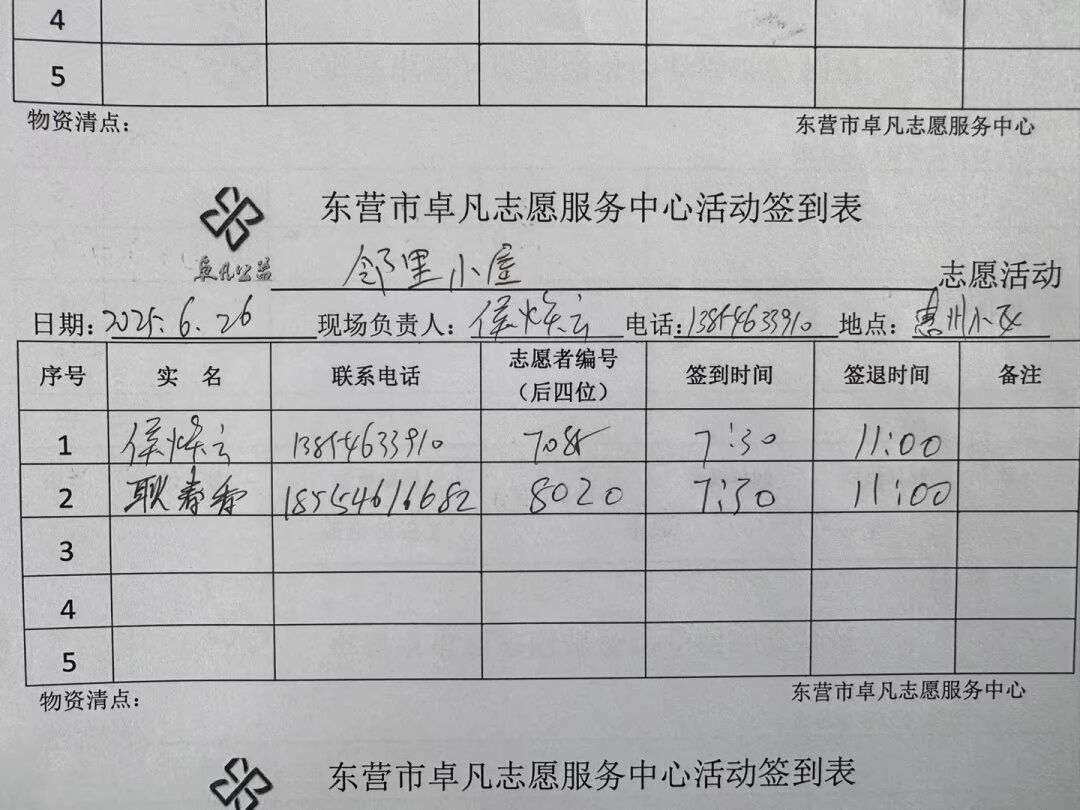 4
5
物资清点：
东营市卓凡志愿服务中心
东营市卓凡志愿服务中心活动签到表
卓凡公益
邻里小屋 志愿活动
日期：2025.6.26 现场负责人：侯焕云 电话：13854633910 地点：惠州小区
序号 实 名 联系电话 志愿者编号（后四位） 签到时间 签退时间 备注
1 侯焕云 13854633910 7:30 11:00
2 耿春香 18554616682 8020 7:30 11:00
3
4
5
物资清点：
东营市卓凡志愿服务中心
东营市卓凡志愿服务中心活动签到表